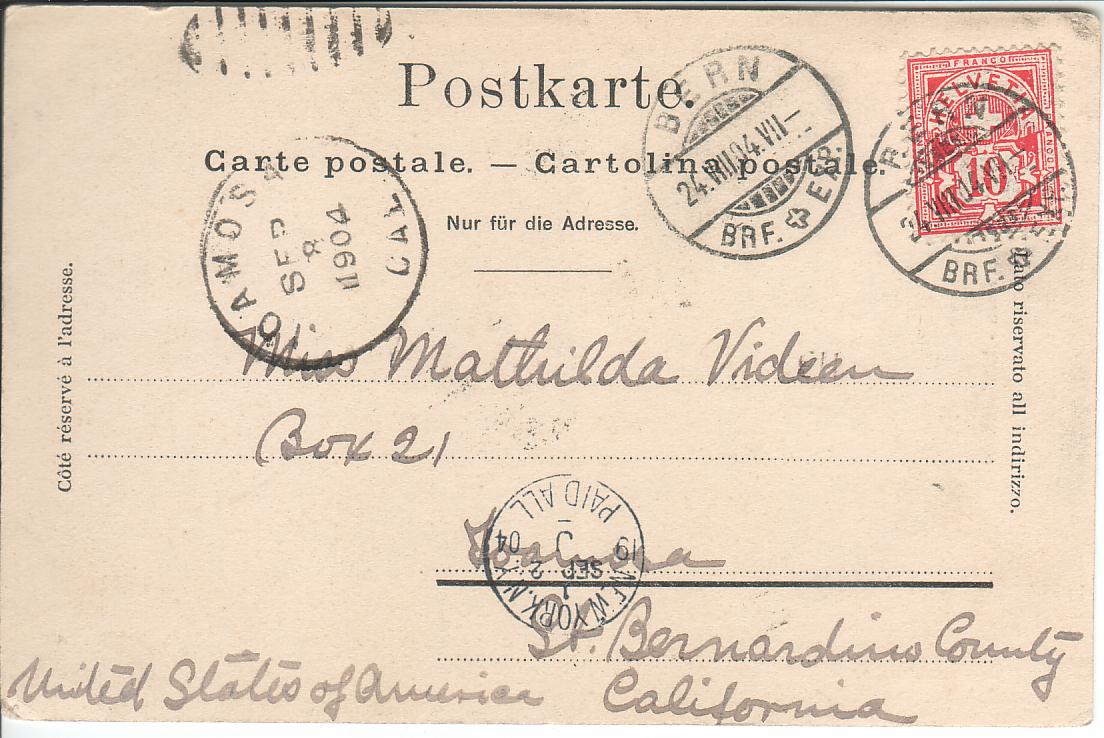 Postkarte.
Carte postale. — Cartolina postale.
Nur für die Adresse.
Côté réservé à l'adresse.
Lato riservato all indirizzo.
FRANCO
HELVETIA
10
FRANCO
BERN
24.VIII.04.VII-
BRF. EXP.
BERN
24.VIII.04.VII-
BRF.
TOAMOSA
SEP
8
1904
CAL.
Miss Mathilda Videen
Box 21
St. Bernardino County
California
United States of America
NEW YORK, N.Y.
SEP
2
19 04
PAID ALL